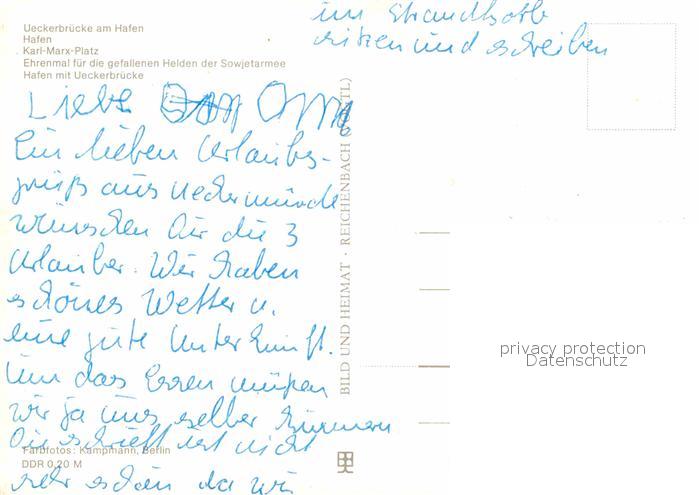 Ueckerbrücke am Hafen
Hafen
Karl-Marx-Platz
Ehrenmal für die gefallenen Helden der Sowjetarmee
Hafen mit Ueckerbrücke
Liebe
Ein lieben Urlaubs-
gruß aus Uckermünde
wünschen Dir die 3
Urlauber. Wir haben
schönes Wetter u.
eine gute Unterkunft.
Um das Essen müßen
wir ja uns selber kümmern
Die Schrift ist nicht
sehr schön da wir
im Strandkorb
sitzen und schreiben
Farbfotos: Kampmann, Berlin
DDR 0,20 M
BILD UND HEIMAT · REICHENBACH (VOGTL)
privacy protection
Datenschutz